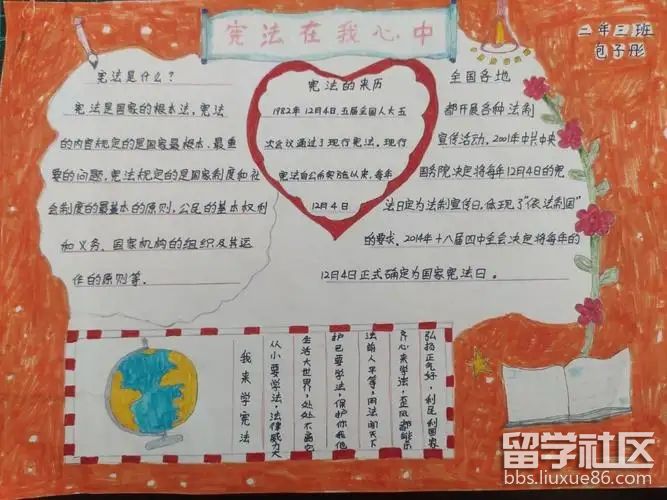 宪法在我心中
二年三班
包子彤
宪法是什么？
宪法是国家的根本法，宪法
的内容规定的是国家最根本、最重
要的问题，宪法规定的是国家制度和社
会制度的最基本的原则，公民的基本权利
和义务、国家机构的组织及其运
作的原则等．
宪法的来历
1982年12月4日，五届全国人大五
次会议通过了现行宪法，现行
宪法自公布实施以来，每年
12月4日
全国各地
都开展各种法制
宣传活动，2001年中共中央
国务院决定将每年12月4日的宪
法日定为法制宣传日，体现了“依法制国”
的要求。2014年十八届四中全会决定将每年的
12月4日正式确定为国家宪法日。
我来学宪法
从小要学法，法律威力大
生活大世界，处处不离它
护己要学法，保护你我他
法前人平等，用法闯天下
齐心来学法，歪风都能杀
弘扬正气好，利民利国家
留学社区
bbs.liuxue86.com